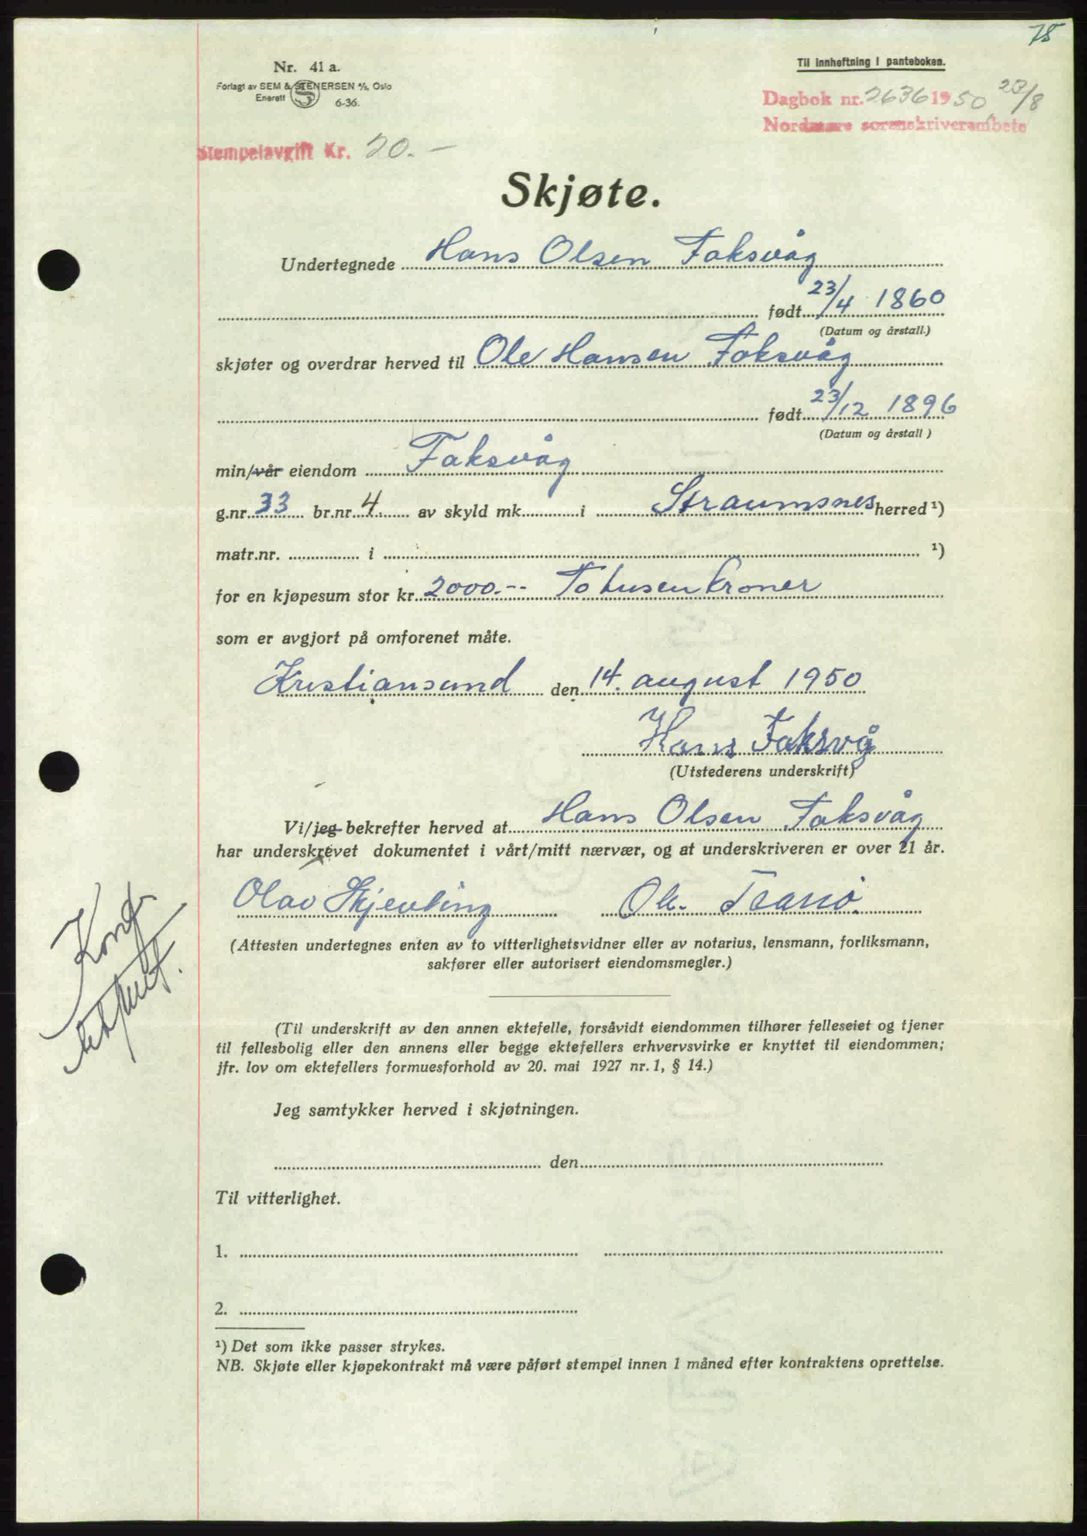 75
Nr. 41 a.
Forlagt av SEM & STENERSEN A/S, Oslo
Enerett S 6-36.
Til innheftning i panteboken.
Dagbok nr. 2636 1950 23/8
Nordmøre sorenskriverembete
Stempelavgift Kr. 20.-
Skjøte.
Undertegnede Hans Olsen Faksvåg
født 23/4 1860
(Datum og årstall.)
skjøter og overdrar herved til Ole Hansen Faksvåg
født 23/12 1896
(Datum og årstall)
min/vår eiendom Faksvåg
g.nr. 33 br.nr. 4 av skyld mk. i Straumsnes herred ¹)
matr.nr. i ¹)
for en kjøpesum stor kr. 2000.-- To tusen kroner
som er avgjort på omforenet måte.
Kristiansund den 14. august 1950
Hans Faksvåg
(Utstederens underskrift)
Vi/jeg bekrefter herved at Hans Olsen Faksvåg
har underskrevet dokumentet i vårt/mitt nærvær, og at underskriveren er over 21 år.
Olav Skjevling Ole
(Attesten undertegnes enten av to vitterlighetsvidner eller av notarius, lensmann, forliksmann,
sakfører eller autorisert eiendomsmegler.)
Konf.
(Til underskrift av den annen ektefelle, forsåvidt eiendommen tilhører felleseiet og tjener
til fellesbolig eller den annens eller begge ektefellers erhvervsvirke er knyttet til eiendommen;
jfr. lov om ektefellers formuesforhold av 20. mai 1927 nr. 1, § 14.)
Jeg samtykker herved i skjøtningen.
den
Til vitterlighet.
1.
2.
¹) Det som ikke passer strykes.
NB. Skjøte eller kjøpekontrakt må være påført stempel innen 1 måned efter kontraktens oprettelse.